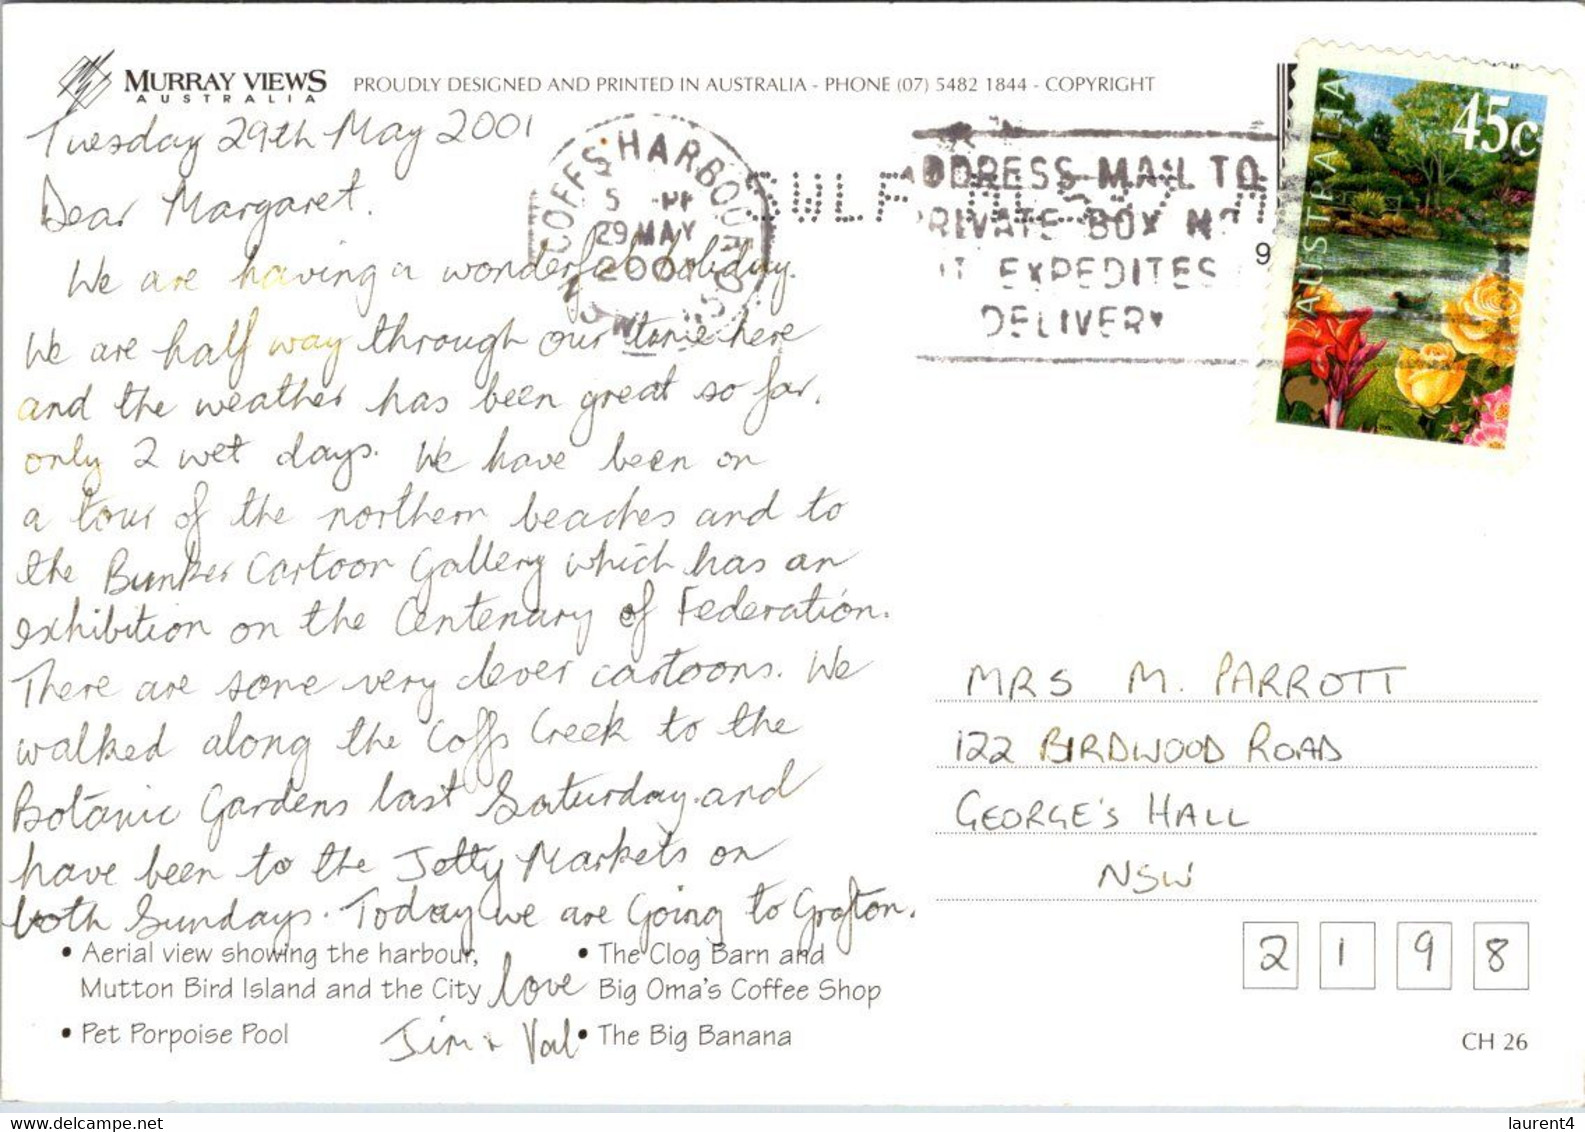 MURRAY VIEWS
AUSTRALIA
PROUDLY DESIGNED AND PRINTED IN AUSTRALIA - PHONE (07) 5482 1844 - COPYRIGHT
Tuesday 29th May 2001
Dear Margaret.
We are having a wonderful holiday.
We are half way through our time here
and the weather has been great so far,
only 2 wet days. We have been on
a tour of the northern beaches and to
the Bunker Cartoon Gallery which has an
exhibition on the Centenary of Federation.
There are some very clever cartoons. We
walked along the Coffs Creek to the
Botanic Gardens last Saturday and
have been to the Jetty Markets on
both Sundays. Today we are Going to Grafton.
love
Jim + Val
• Aerial view showing the harbour,
Mutton Bird Island and the City
• Pet Porpoise Pool
• The Clog Barn and
Big Oma's Coffee Shop
• The Big Banana
COFFS HARBOUR
29 MAY
2001
ADDRESS MAIL TO
PRIVATE BOX NO
IT EXPEDITES
DELIVERY
9
AUSTRALIA
45c
MRS M. PARROTT
122 BIRDWOOD ROAD
GEORGE'S HALL
NSW
2 1 9 8
CH 26
delcampe.net
laurent4